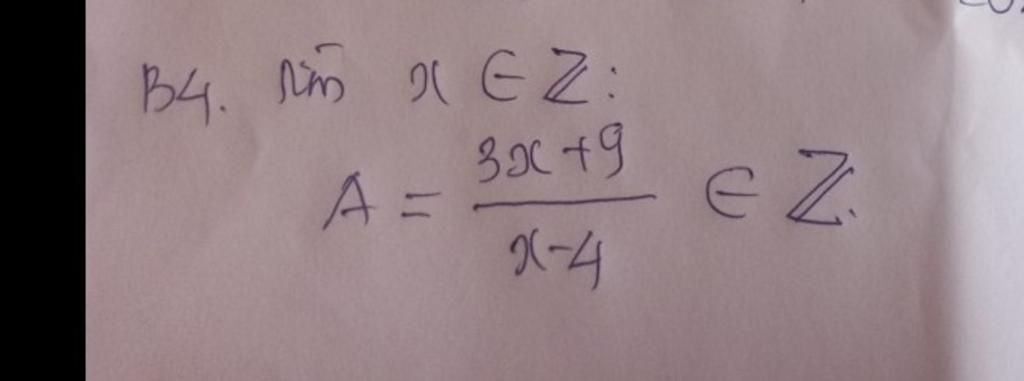 B4. Tìm x ∈ Z:
A = 3x+9 / x-4 ∈ Z.